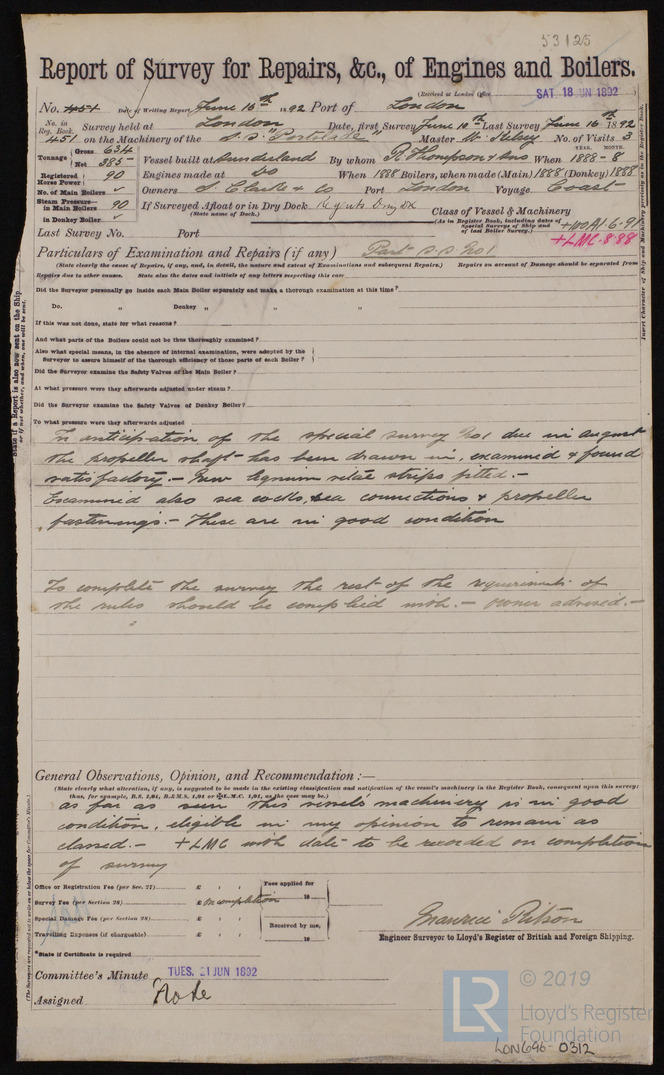 53125
Report of Survey for Repairs, &c., of Engines and Boilers.
(Received at London Office SAT. 18 JUN 1892
No. 454 Date of Writing Report June 16th 1892 Port of London
No. in Reg. Book. Survey held at London Date, first Survey June 10th Last Survey June 16th 1892
451 on the Machinery of the S.S. Master W. No. of Visits 3
Tonnage Gross 634 Net 385 Vessel built at Sunderland By whom R. Thompson & Sons When 1888-8 YEAR. MONTH.
Registered Horse Power 90 Engines made at Do When 1888 Boilers, when made (Main) 1888 (Donkey) 1888
No. of Main Boilers ✓ Owners S. Clarke & Co Port London Voyage Coast
Steam Pressure— in Main Boilers 90 If Surveyed Afloat or in Dry Dock Regents Dry Dk
(State name of Dock.)
in Donkey Boiler ✓
Class of Vessel & Machinery
(As in Register Book, including dates of Special Surveys of Ship and of last Boiler Survey.) +100A1.6.91
+LMC.8.88
Last Survey No. Port
Particulars of Examination and Repairs (if any) Part S.S. No 1
(State clearly the cause of Repairs, if any, and, in detail, the nature and extent of Examinations and subsequent Repairs.) Repairs on account of Damage should be separated from
Repairs due to other causes. State also the dates and initials of any letters respecting this case
Did the Surveyor personally go inside each Main Boiler separately and make a thorough examination at this time?
Do. „ Donkey „ „ „
If this was not done, state for what reasons?
And what parts of the Boilers could not be thus thoroughly examined?
Also what special means, in the absence of internal examination, were adopted by the
Surveyor to assure himself of the thorough efficiency of those parts of each Boiler?
Did the Surveyor examine the Safety Valves of the Main Boiler?
At what pressure were they afterwards adjusted under steam?
Did the Surveyor examine the Safety Valves of Donkey Boiler?
To what pressure were they afterwards adjusted
In anticipation of the special survey No 1 due in August
the propeller shaft has been drawn in, examined & found
satisfactory.— New lignum vitae strips fitted.—
Examined also sea cocks, sea connections & propeller
fastenings.— These are in good condition
To complete the survey the rest of the requirements of
the rules should be complied with.— Owner advised.—
General Observations, Opinion, and Recommendation:—
(State clearly what alteration, if any, is suggested to be made in the existing classification and notification of the vessel's machinery in the Register Book, consequent upon this survey;
thus, for example, B.S. 1,91, B.&M.S. 1,91 or ✠L.M.C. 1,91, as the case may be.)
as far as seen this vessel's machinery is in good
condition, eligible in my opinion to remain as
classed.— +LMC with date to be recorded on completion
of survey
Office or Registration Fee (per Sec. 27) £ : :
Survey Fee (per Section 28) £ on completion
Special Damage Fee (per Section 28) £ : :
Travelling Expenses (if chargeable) £ : :
Fees applied for 18
Received by me, 18
*State if Certificate is required
Maurice Ritson
Engineer Surveyor to Lloyd's Register of British and Foreign Shipping.
Committee's Minute TUES. 21 JUN 1892
Assigned Note
© 2019
LR
Lloyd's Register
Foundation
LON696-0312
State if a Report is also now sent on the Ship
or if not whether, and when, one will be sent.
Insert Character of Ship and Machinery precisely as in the Register Book.